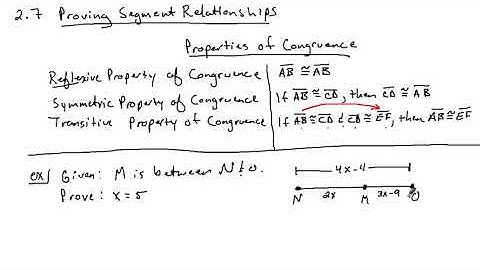 2.7 Proving Segment Relationships
Properties of Congruence
Reflexive Property of Congruence | A̅B̅ ≅ A̅B̅
Symmetric Property of Congruence | If A̅B̅ ≅ C̅D̅, then C̅D̅ ≅ A̅B̅
Transitive Property of Congruence | If A̅B̅ ≅ C̅D̅ & C̅D̅ ≅ E̅F̅, then A̅B̅ ≅ E̅F̅
ex) Given: M is between N & O.
Prove: x = 5
4x-4
N 2x M 3x-9 O